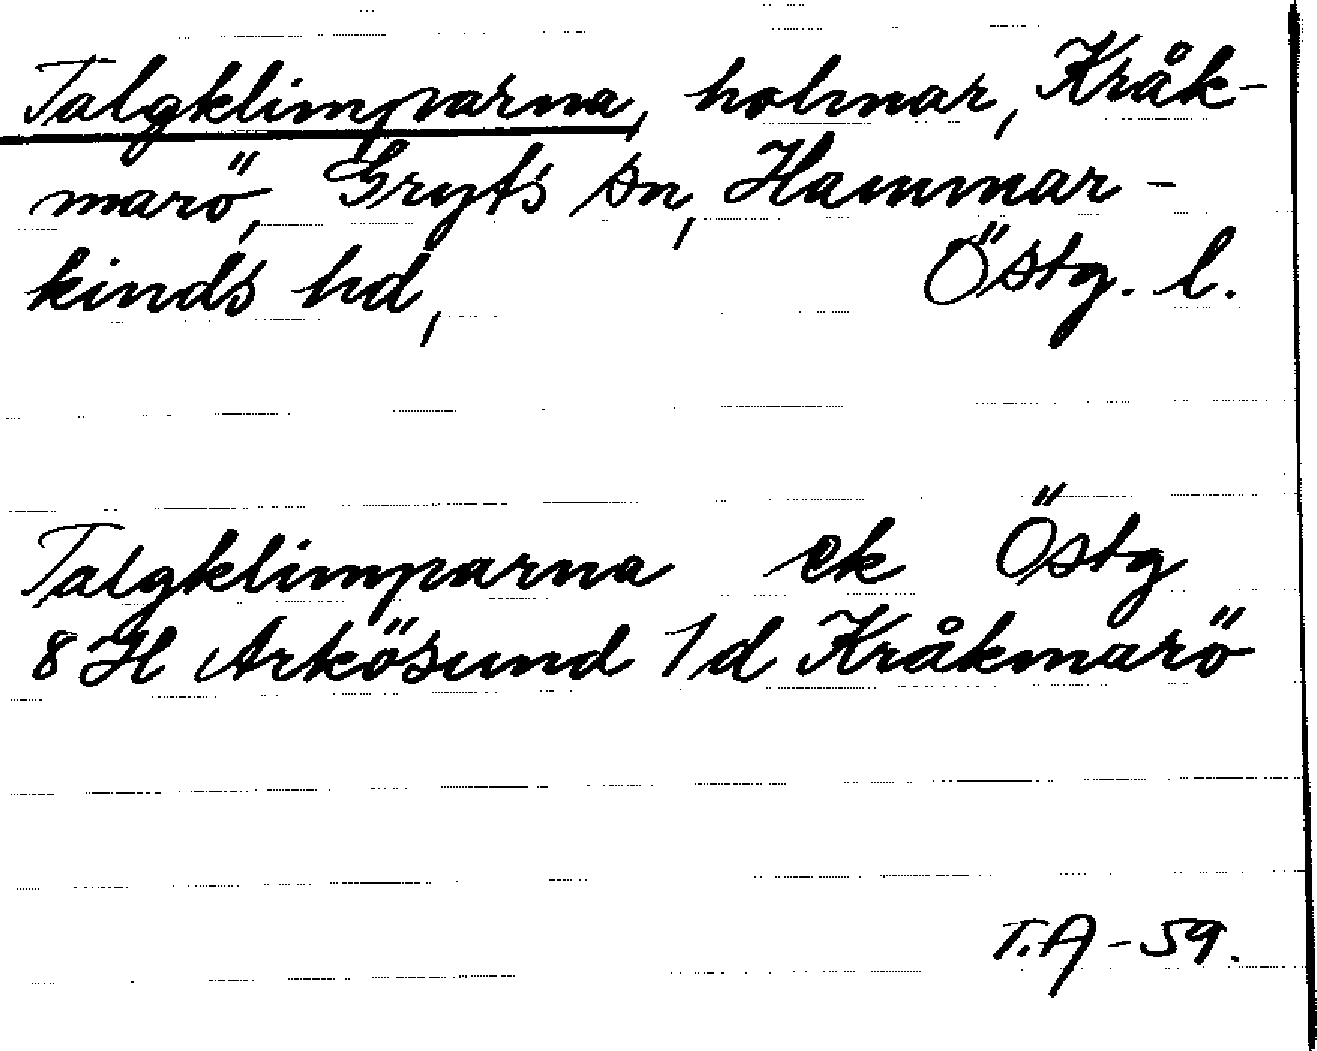 Talgklimparna, holmar, Kråk-
marö, Gryts sn, Hammar-
kinds hd, Östg. l.
Talgklimparna ek Östg
8 H Arkösund 1d Kråkmarö
T.A-59.